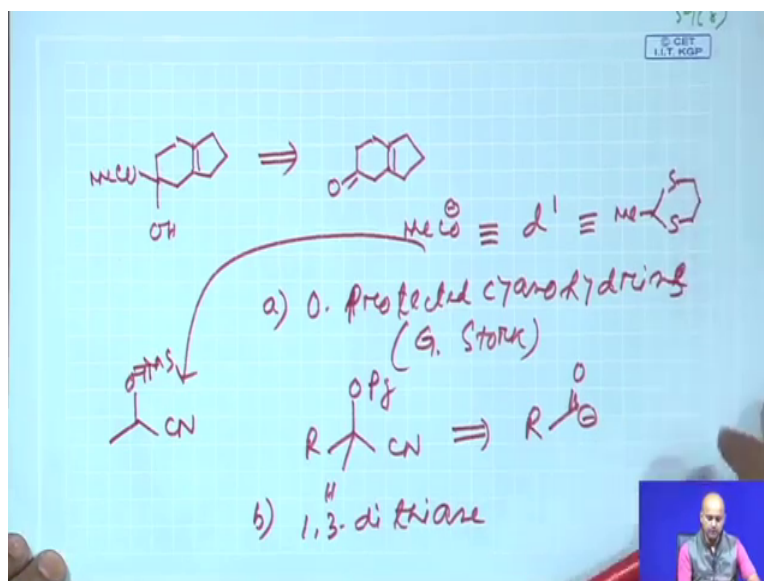 © CET
I.I.T. KGP
MeCO
OH
⇒
O
MeCO⊖ ≡ d¹ ≡ Me
S
S
a) O. Protected cyanohydrins
(G. Stork)
OTMS
CN
OPg
R
CN
H
⇒
R
O
⊖
b) 1,3-dithiane